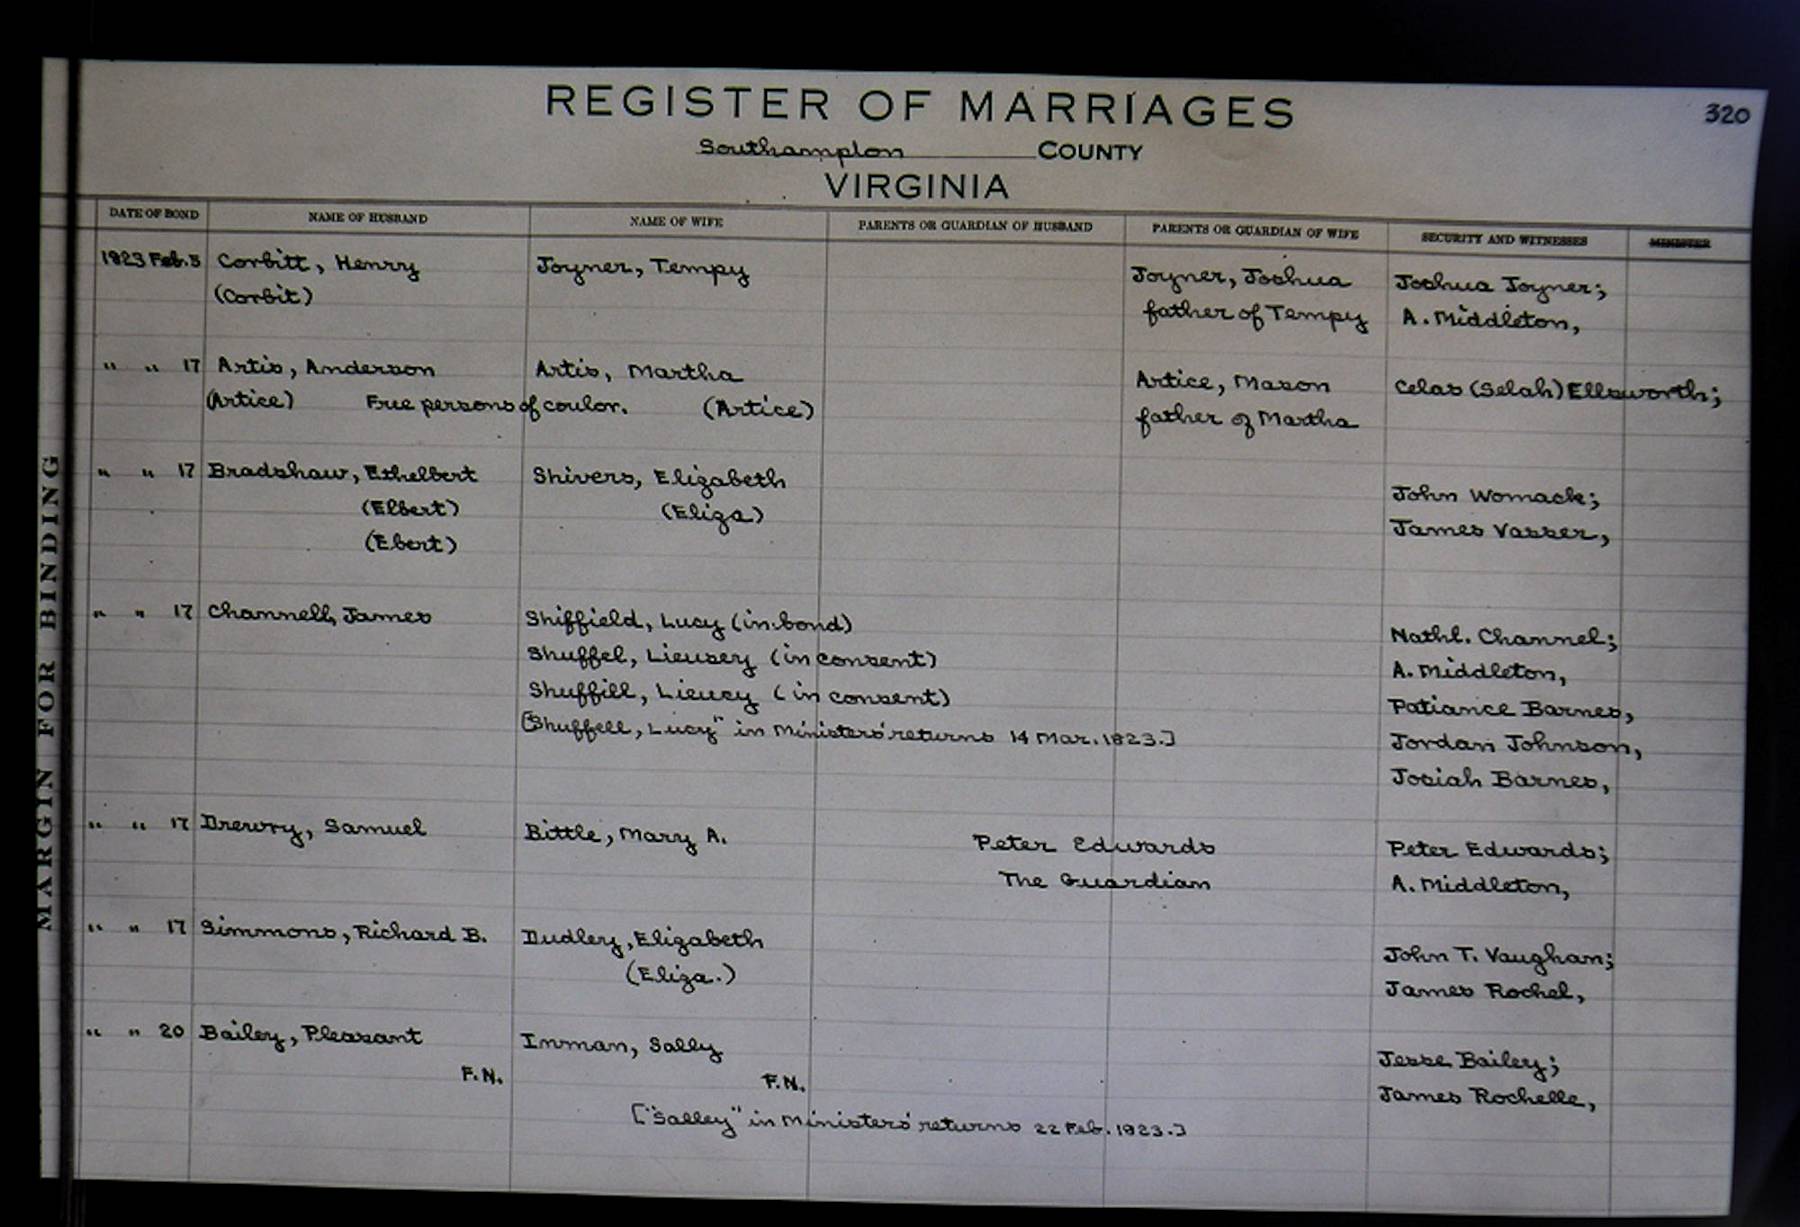 320
REGISTER OF MARRIAGES
Southampton COUNTY
VIRGINIA
MARGIN FOR BINDING
DATE OF BOND NAME OF HUSBAND NAME OF WIFE PARENTS OR GUARDIAN OF HUSBAND PARENTS OR GUARDIAN OF WIFE SECURITY AND WITNESSES MINISTER
1823 Feb. 5 Corbitt, Henry Joyner, Tempy Joyner, Joshua Joshua Joyner;
(Corbit) father of Tempy A. Middleton,
" " 17 Artis, Anderson Artis, Martha Artice, Mason Celas (Selah) Ellsworth;
(Artice) Free persons of coulor. (Artice) father of Martha
" " 17 Bradshaw, Ethelbert Shivers, Elizabeth John Womack;
(Elbert) (Eliza) James Vasser,
(Ebert)
" " 17 Channell, James Shiffield, Lucy (in bond) Nathl. Channel;
Shuffel, Lieusey (in consent) A. Middleton,
Shuffill, Lieucy (in consent) Patiance Barnes,
["Shuffell, Lucy" in Ministers' returns 14 Mar. 1823.] Jordan Johnson,
Josiah Barnes,
" " 17 Drewry, Samuel Bittle, Mary A. Peter Edwards Peter Edwards;
The Guardian A. Middleton,
" " 17 Simmons, Richard B. Dudley, Elizabeth John T. Vaughan;
(Eliza.) James Rochel,
" " 20 Bailey, Pleasant Inman, Sally Jesse Bailey;
F.N. F.N. James Rochelle,
["Salley" in Ministers' returns 22 Feb. 1823.]